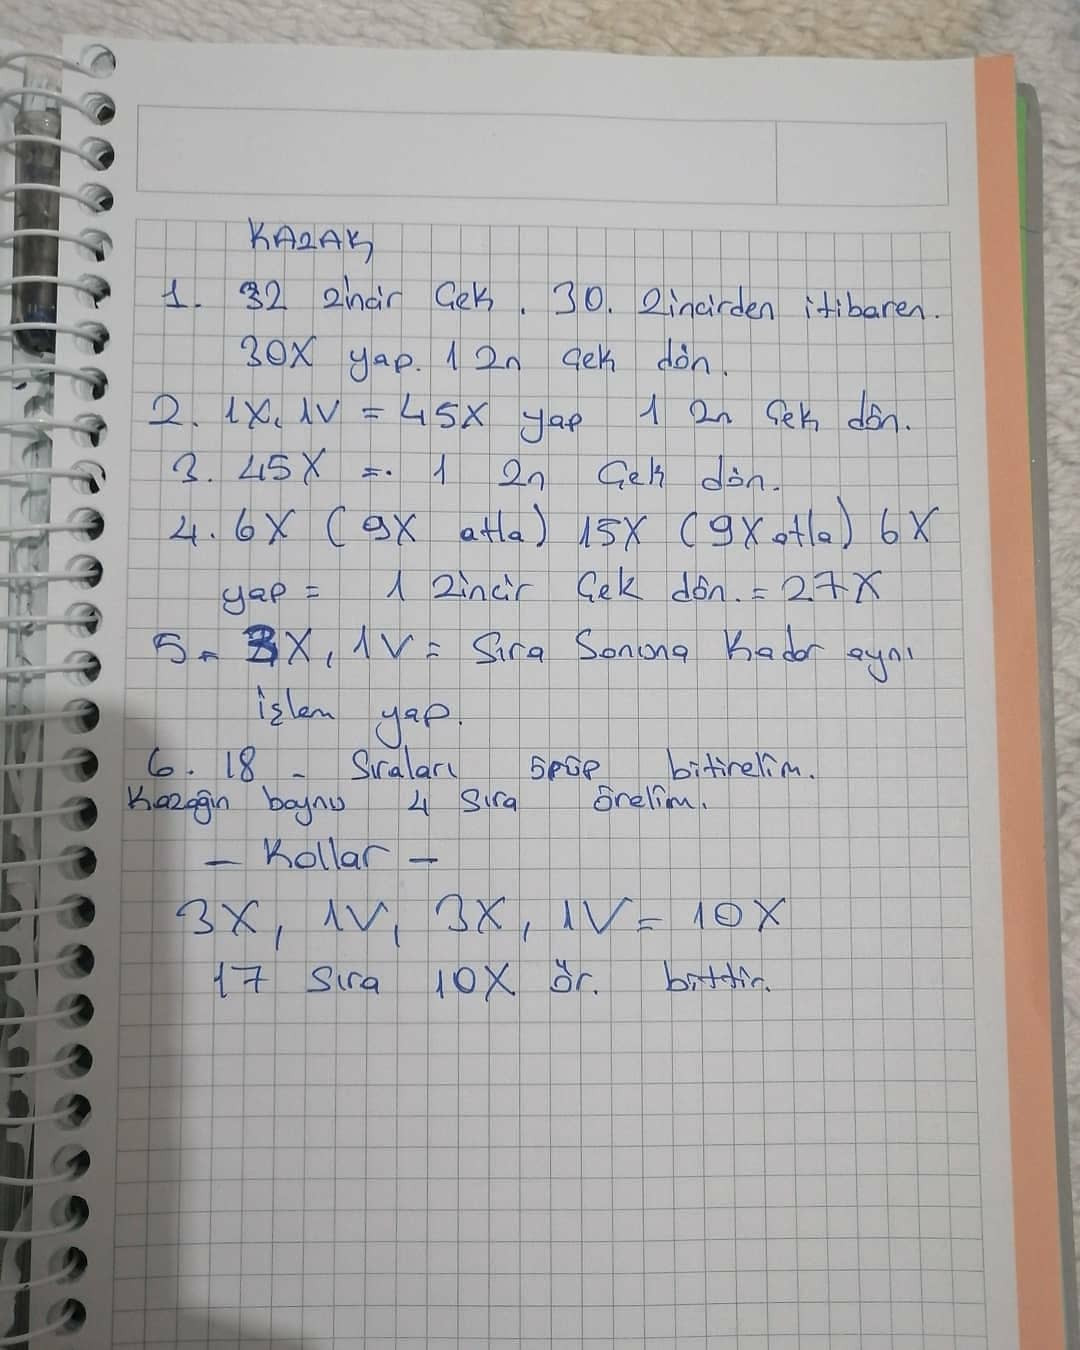 KAZAK
1. 32 zincir Çek. 30. Zincirden itibaren.
30X yap. 1 Zn Çek dön.
2. 1X, 1V = 45X yap 1 Zn Çek dön.
3. 45X =. 1 Zn Çek dön.
4. 6X (9X atla) 15X (9X atla) 6X
yap = 1 Zincir Çek dön. = 27X
5. 3X, 1V = Sıra Sonuna Kadar aynı
işlem yap.
6. 18 - Sıraları öpüp bitirelim.
Kazağın boynu 4 Sıra örelim.
- Kollar -
3X, 1V, 3X, 1V = 10X
17 Sıra 10X ör. bittir.